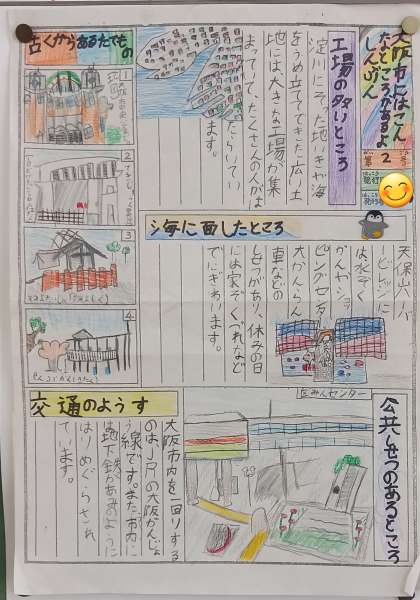 大阪市にはこん
なところがあるよ
しんぶん
第2号
発行
工場の多いところ
淀川にそった地いきや海
をうめ立ててできた広い土
地には大きな工場が集
まっていて、たくさんの人がは
たらいてい
ます。
古くからあるたてもの
1
2
3
4
海に面したところ
天保山ハーバ
ービレッジに
は水ぞく
かんやショッ
ピングセンター
大かんらん
車などの
しせつがあり、休みの日
には家ぞくづれなど
でにぎわいます。
公共しせつのあるところ
区みんセンター
交通のようす
大阪市内を一回りする
のはJRの大阪かんじょ
う線です。また、市内に
は地下鉄があみのように
はりめぐらされ
ています。